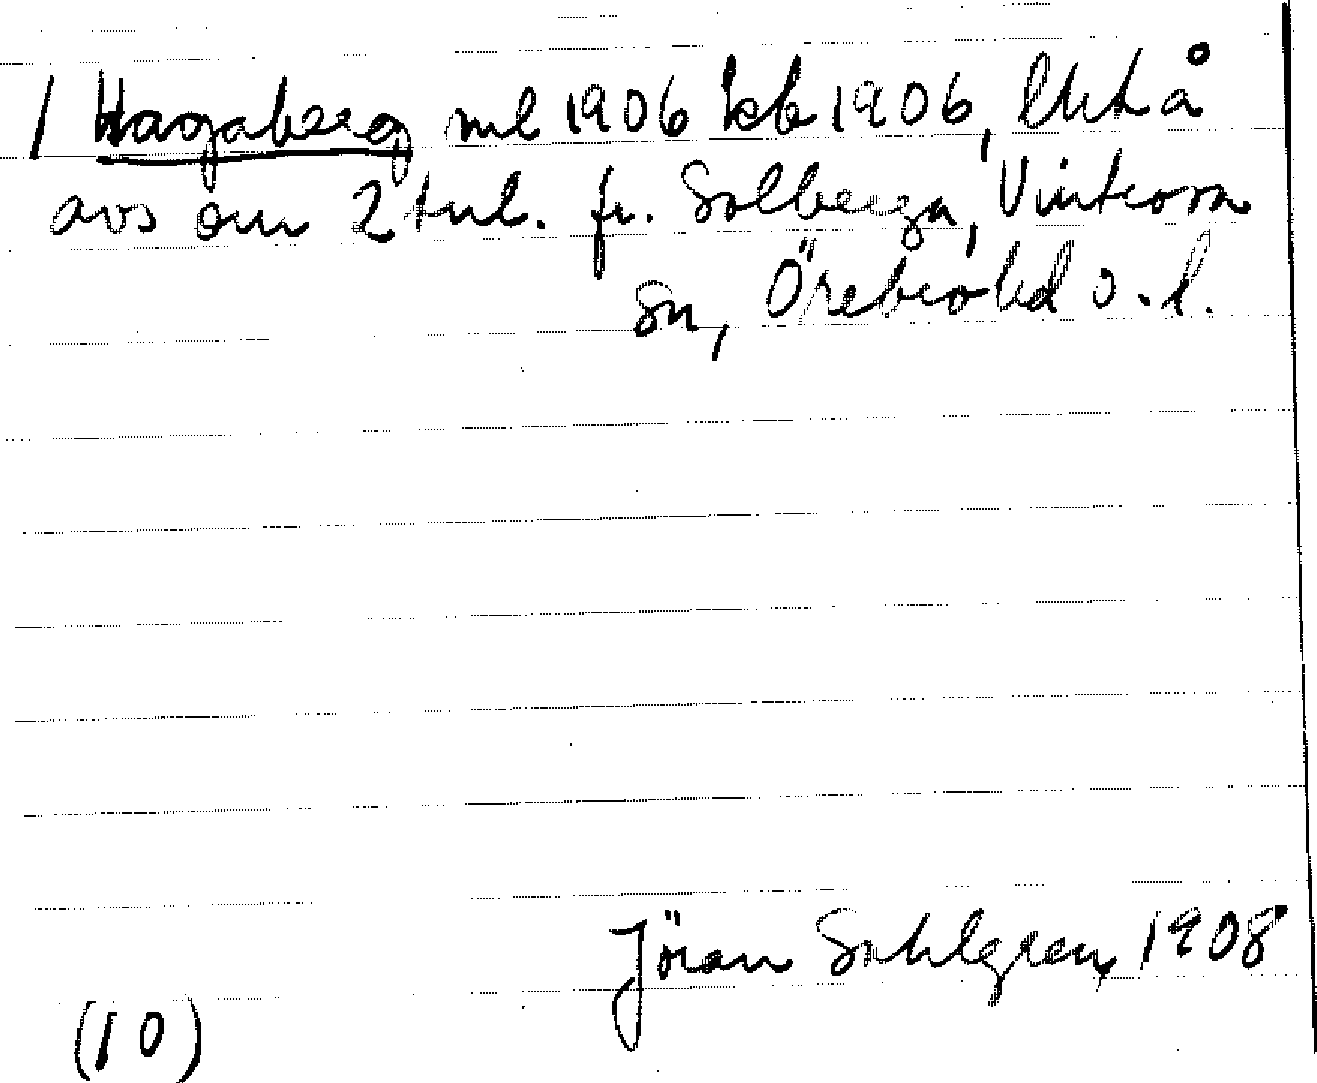 / Hagaberg ml 1906 kb 1906, lht å
avs om 2 tnl. fr. Solberga, Vintrosa
sn, Örebro hd o. l.
Jöran Sahlgren, 1908
(10)